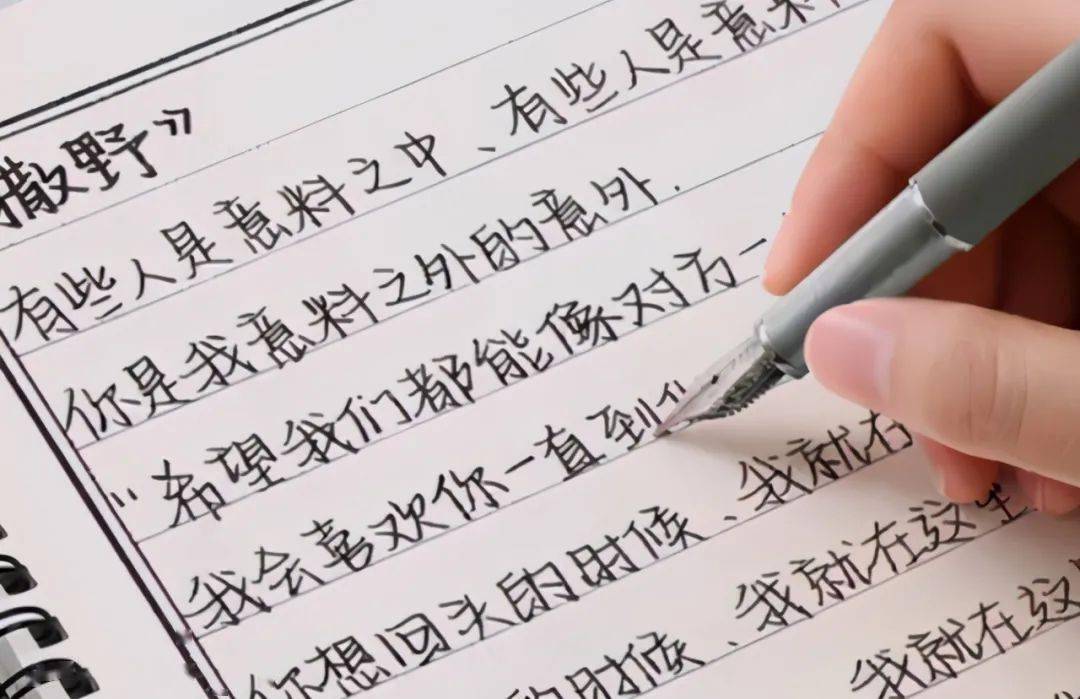 撒野》
有些人是意料之中、有些人是意料
你是我意料之外的意外.
"希望我们都能像对方一
我会喜欢你一直到
你想回头的时候、我就在
的时候、我就在这里
我就在这